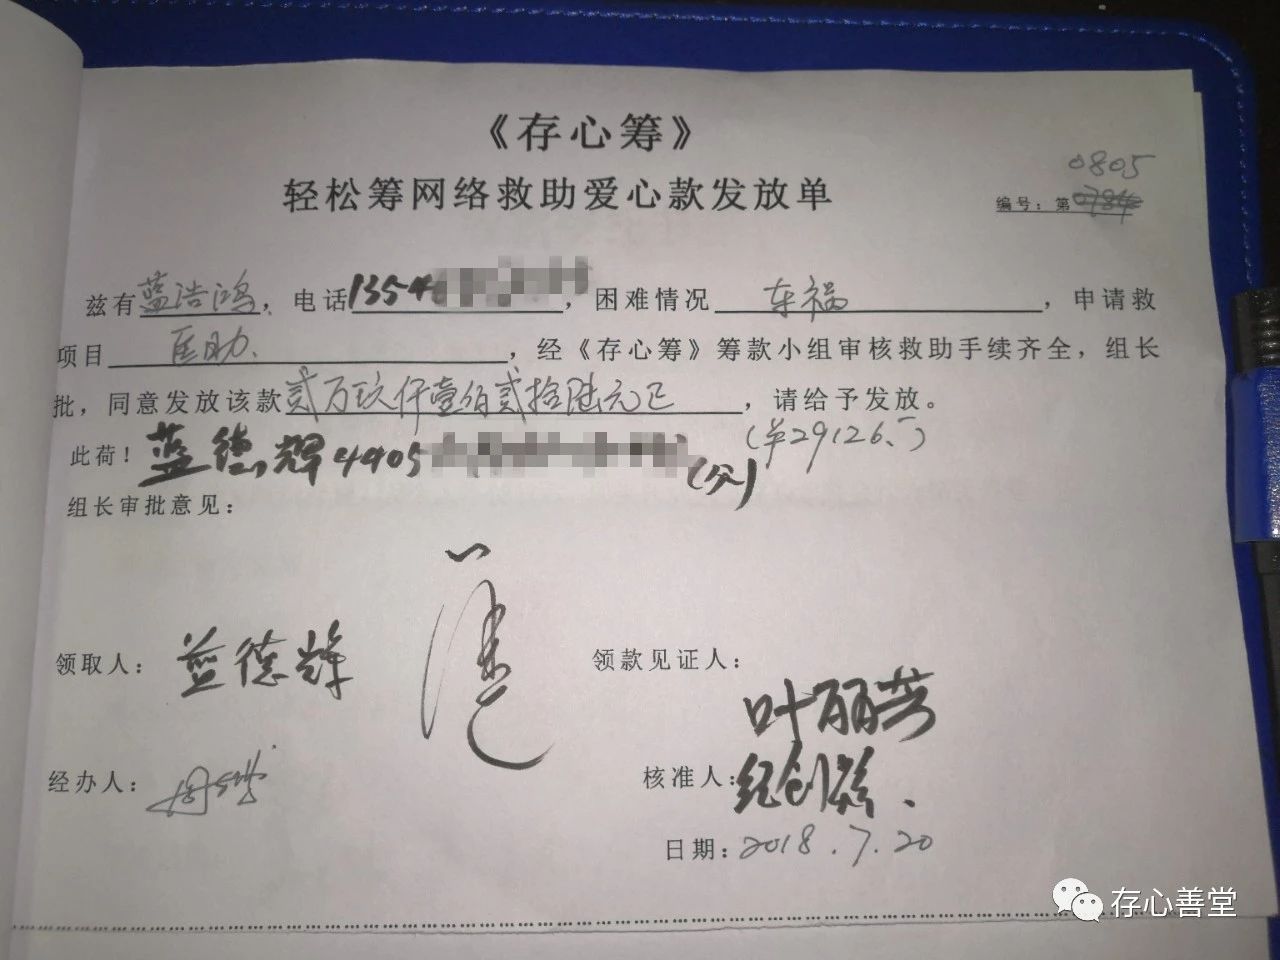 《存心筹》
轻松筹网络救助爱心款发放单
0805
编号：第0784
兹有蓝浩鸿，电话1354，困难情况车祸，申请救
项目医助，经《存心筹》筹款小组审核救助手续齐全，组长
批，同意发放该款贰万玖仟壹佰贰拾陆元正，请给予发放。
(¥29126.-)
此荷！蓝德辉4405(父)
组长审批意见：
领取人：蓝德辉
领款见证人：
叶丽芳
经办人：
核准人：纪创
日期：2018.7.20
存心善堂